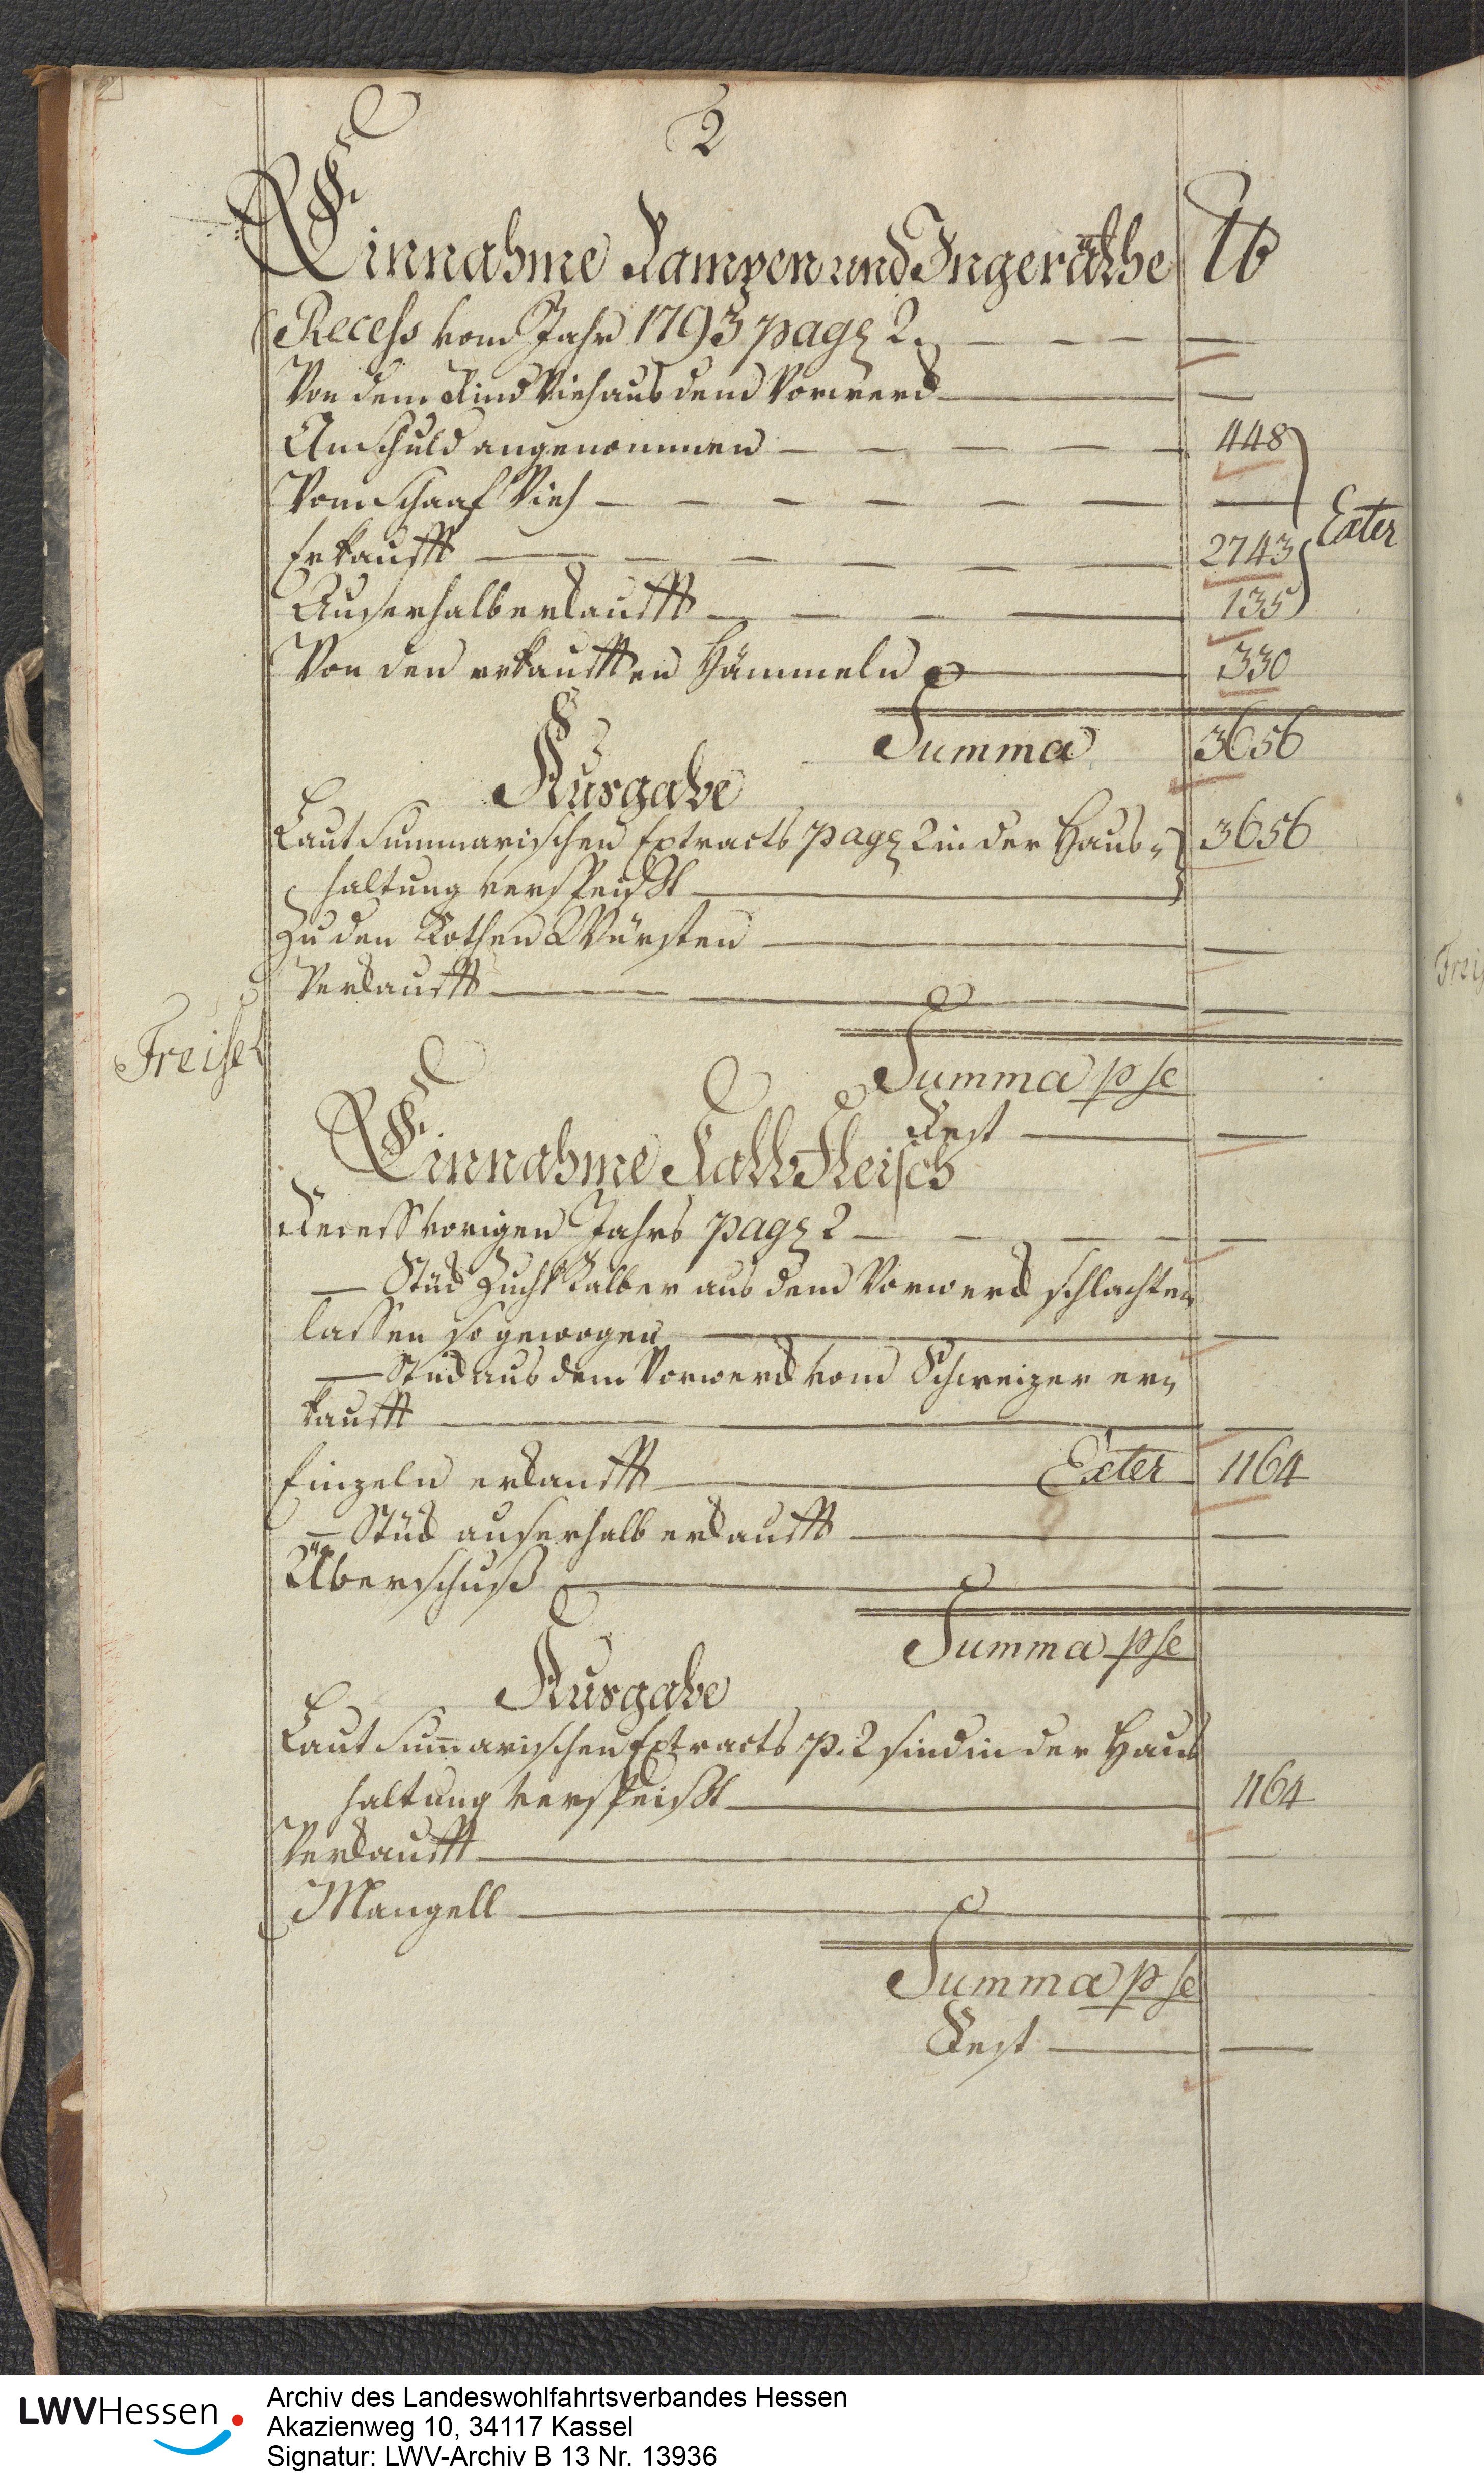 2
Einnahme Rampen und Ingeräthe lb
Recess vom Jahr 1793 pag. 2. — — — —
Von dem Rind Vieh aus dem Vorwerck — —
An Schuld angenommen — — — — — 448
Vom Schaaf Vieh — — — — — — — —
Erkaufft — — — — — — 2743 Exter
Auserhalb erkaufft — — — — 135
Von den erkaufften Hämmeln — 330
Summa 3656
Ausgabe
Laut Summarischen Extracts pag. 2 in der Haus= 3656
haltung verspeißt —
Zu den Rothen Würsten — —
Verkaufft — — —
Freiset
Summa p se
Rest — —
Einnahme Kalb Fleisch
Recess vorigen Jahrs pag. 2 — — — — —
— Stück Zucht Kälber aus dem Vorwerck schlachten
lassen so gewogen — —
— Stück aus dem Vorwerck vom Schweizer er=
kaufft — — —
Einzeln erkaufft — Exter 1164
— Stück auserhalb erkaufft — —
Überschuß — —
Summa p se
Ausgabe
Laut Sum̄arischen Extracts p. 2 sind in der Haus
haltung verspeißt — 1164
Verkaufft — —
Mangell — —
Summa p se
Rest — —
LWVHessen
Archiv des Landeswohlfahrtsverbandes Hessen
Akazienweg 10, 34117 Kassel
Signatur: LWV-Archiv B 13 Nr. 13936